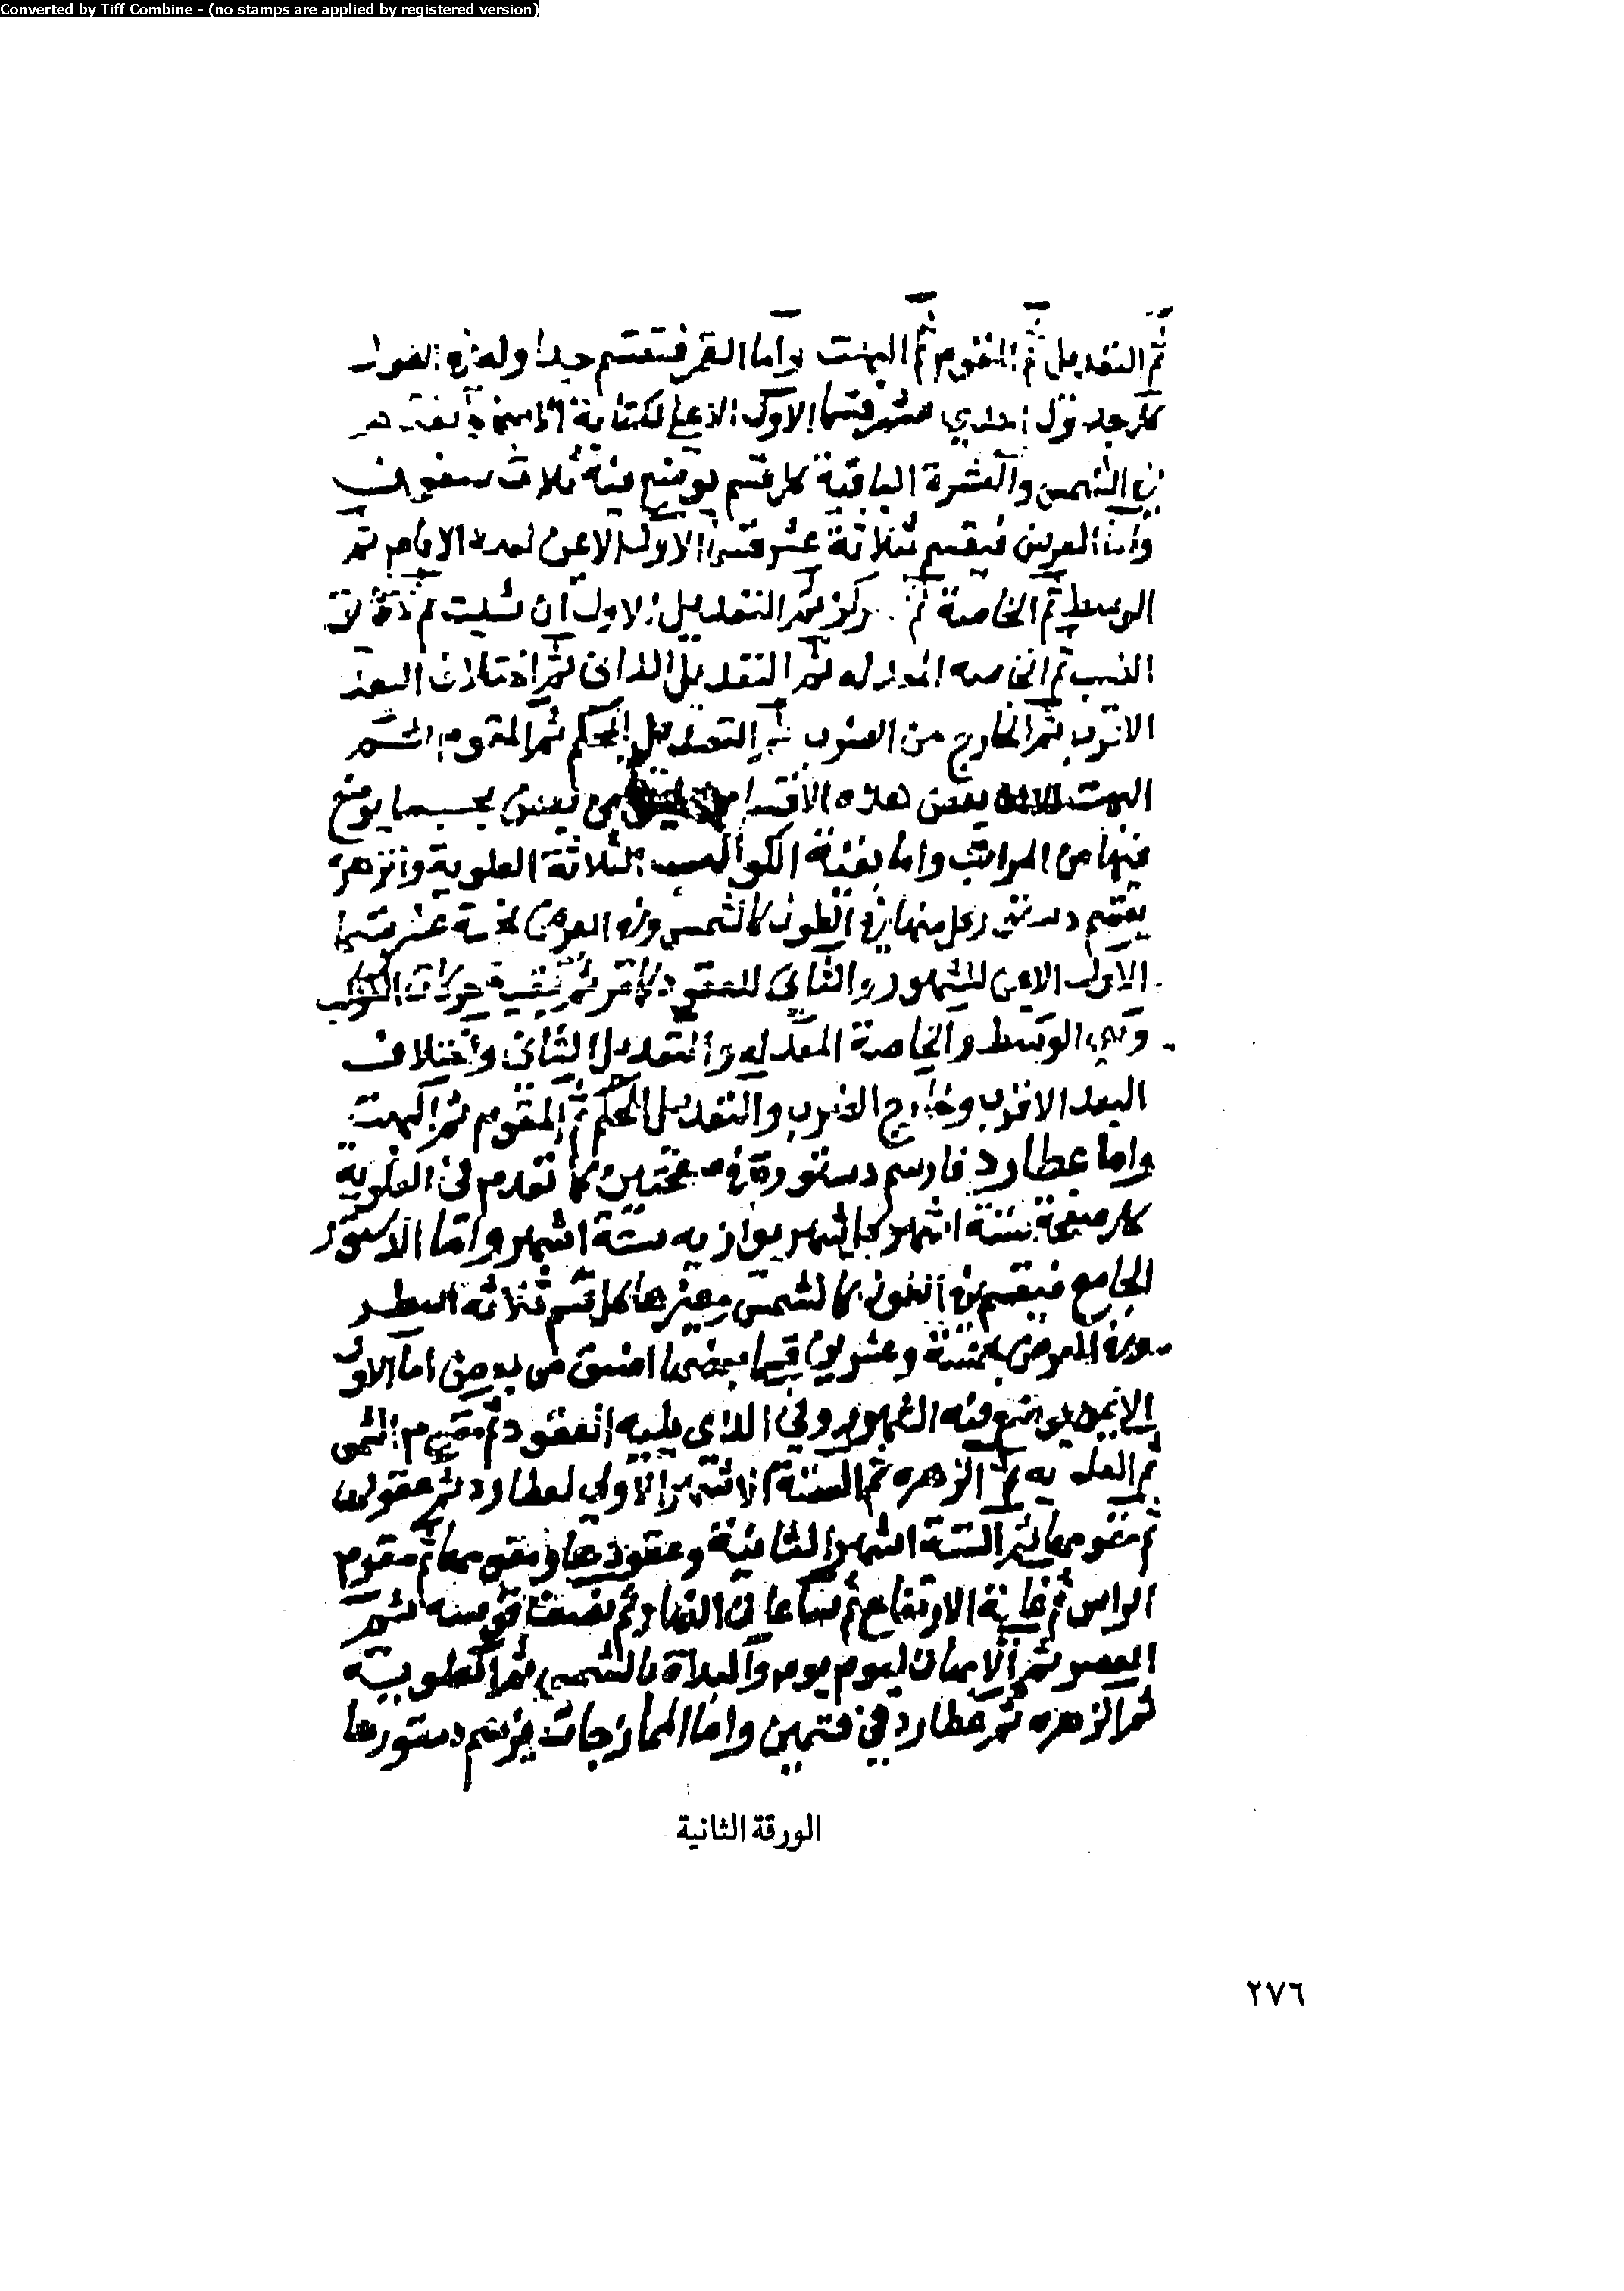 Converted by Tiff Combine - (no stamps are applied by registered version)
ثم التعديل ثم المقوم ثم البهت واما القمر فتقسم جداوله في الطول
كل جدول احدي عشر قسما الاول الاعلى لكتابة
في الشمس والعشرة الباقية كل قسم يوضع فيه ثلاث
واما العرض فيقسم ثلاثة عشر قسما الاول الايمن لعدد الايام ثم
الوسط ثم الخاصة ثم المركز ثم التعديل الاول ان شئت ثم دقائق
النسب ثم الخاصه المعدله ثم التعديل الثاني ثم اختلاف البعد
الاقرب ثم الخارج من الضرب ثم التعديل المحكم ثم المقوم ثم
البهت بعض هذه الاقسام من بعض بحسب ما يوضع
فيها من المراتب واما بقية الكواكب الثلاثة العلوية والزهرة
يقسم دستور كل منها في الطول كالشمس وفي العرض عشر قسما
الاول الايمن للشهور والثاني للعقود كالقمر ثم بقية حركات الكوكب
وهي الوسط والخاصة المعدله والتعديل الثاني واختلاف
البعد الاقرب وخارج الضرب والتعديل المحكم ثم المقوم ثم البهت
واما عطارد فارسم دستوره في صفحتين كما تقدم في العلوية
كل صفحة ستة اشهر كل شهر يوازيه ستة اشهر واما الدستور
الجامع فيقسم في الطول كالشمس وغيرها كل قسم ثلاثة اسطر
وفي العرض خمسة وعشرين قسما بعضها اضيق من بعض اما الاول
الايمن يوضع فيه الشهور وفي الذي يليه العقود ثم مقوم الشمس
ثم العلويه ثم الزهره ثم الستة الاشهر الاولى لعطارد ثم عقودها
ثم مقومها ثم الستة اشهر الثانية وعقودها ومقومها ثم مقوم
الراس ثم غاية الارتفاع ثم ساعات النهار ثم نصف قوسه ثم
العصر ثم الامعان ليوم يوم والبداة بالشمس ثم العلوية
ثم الزهره ثم عطارد في قسمين واما الممازجات يرسم دستورها
الورقة الثانية
٢٧٦